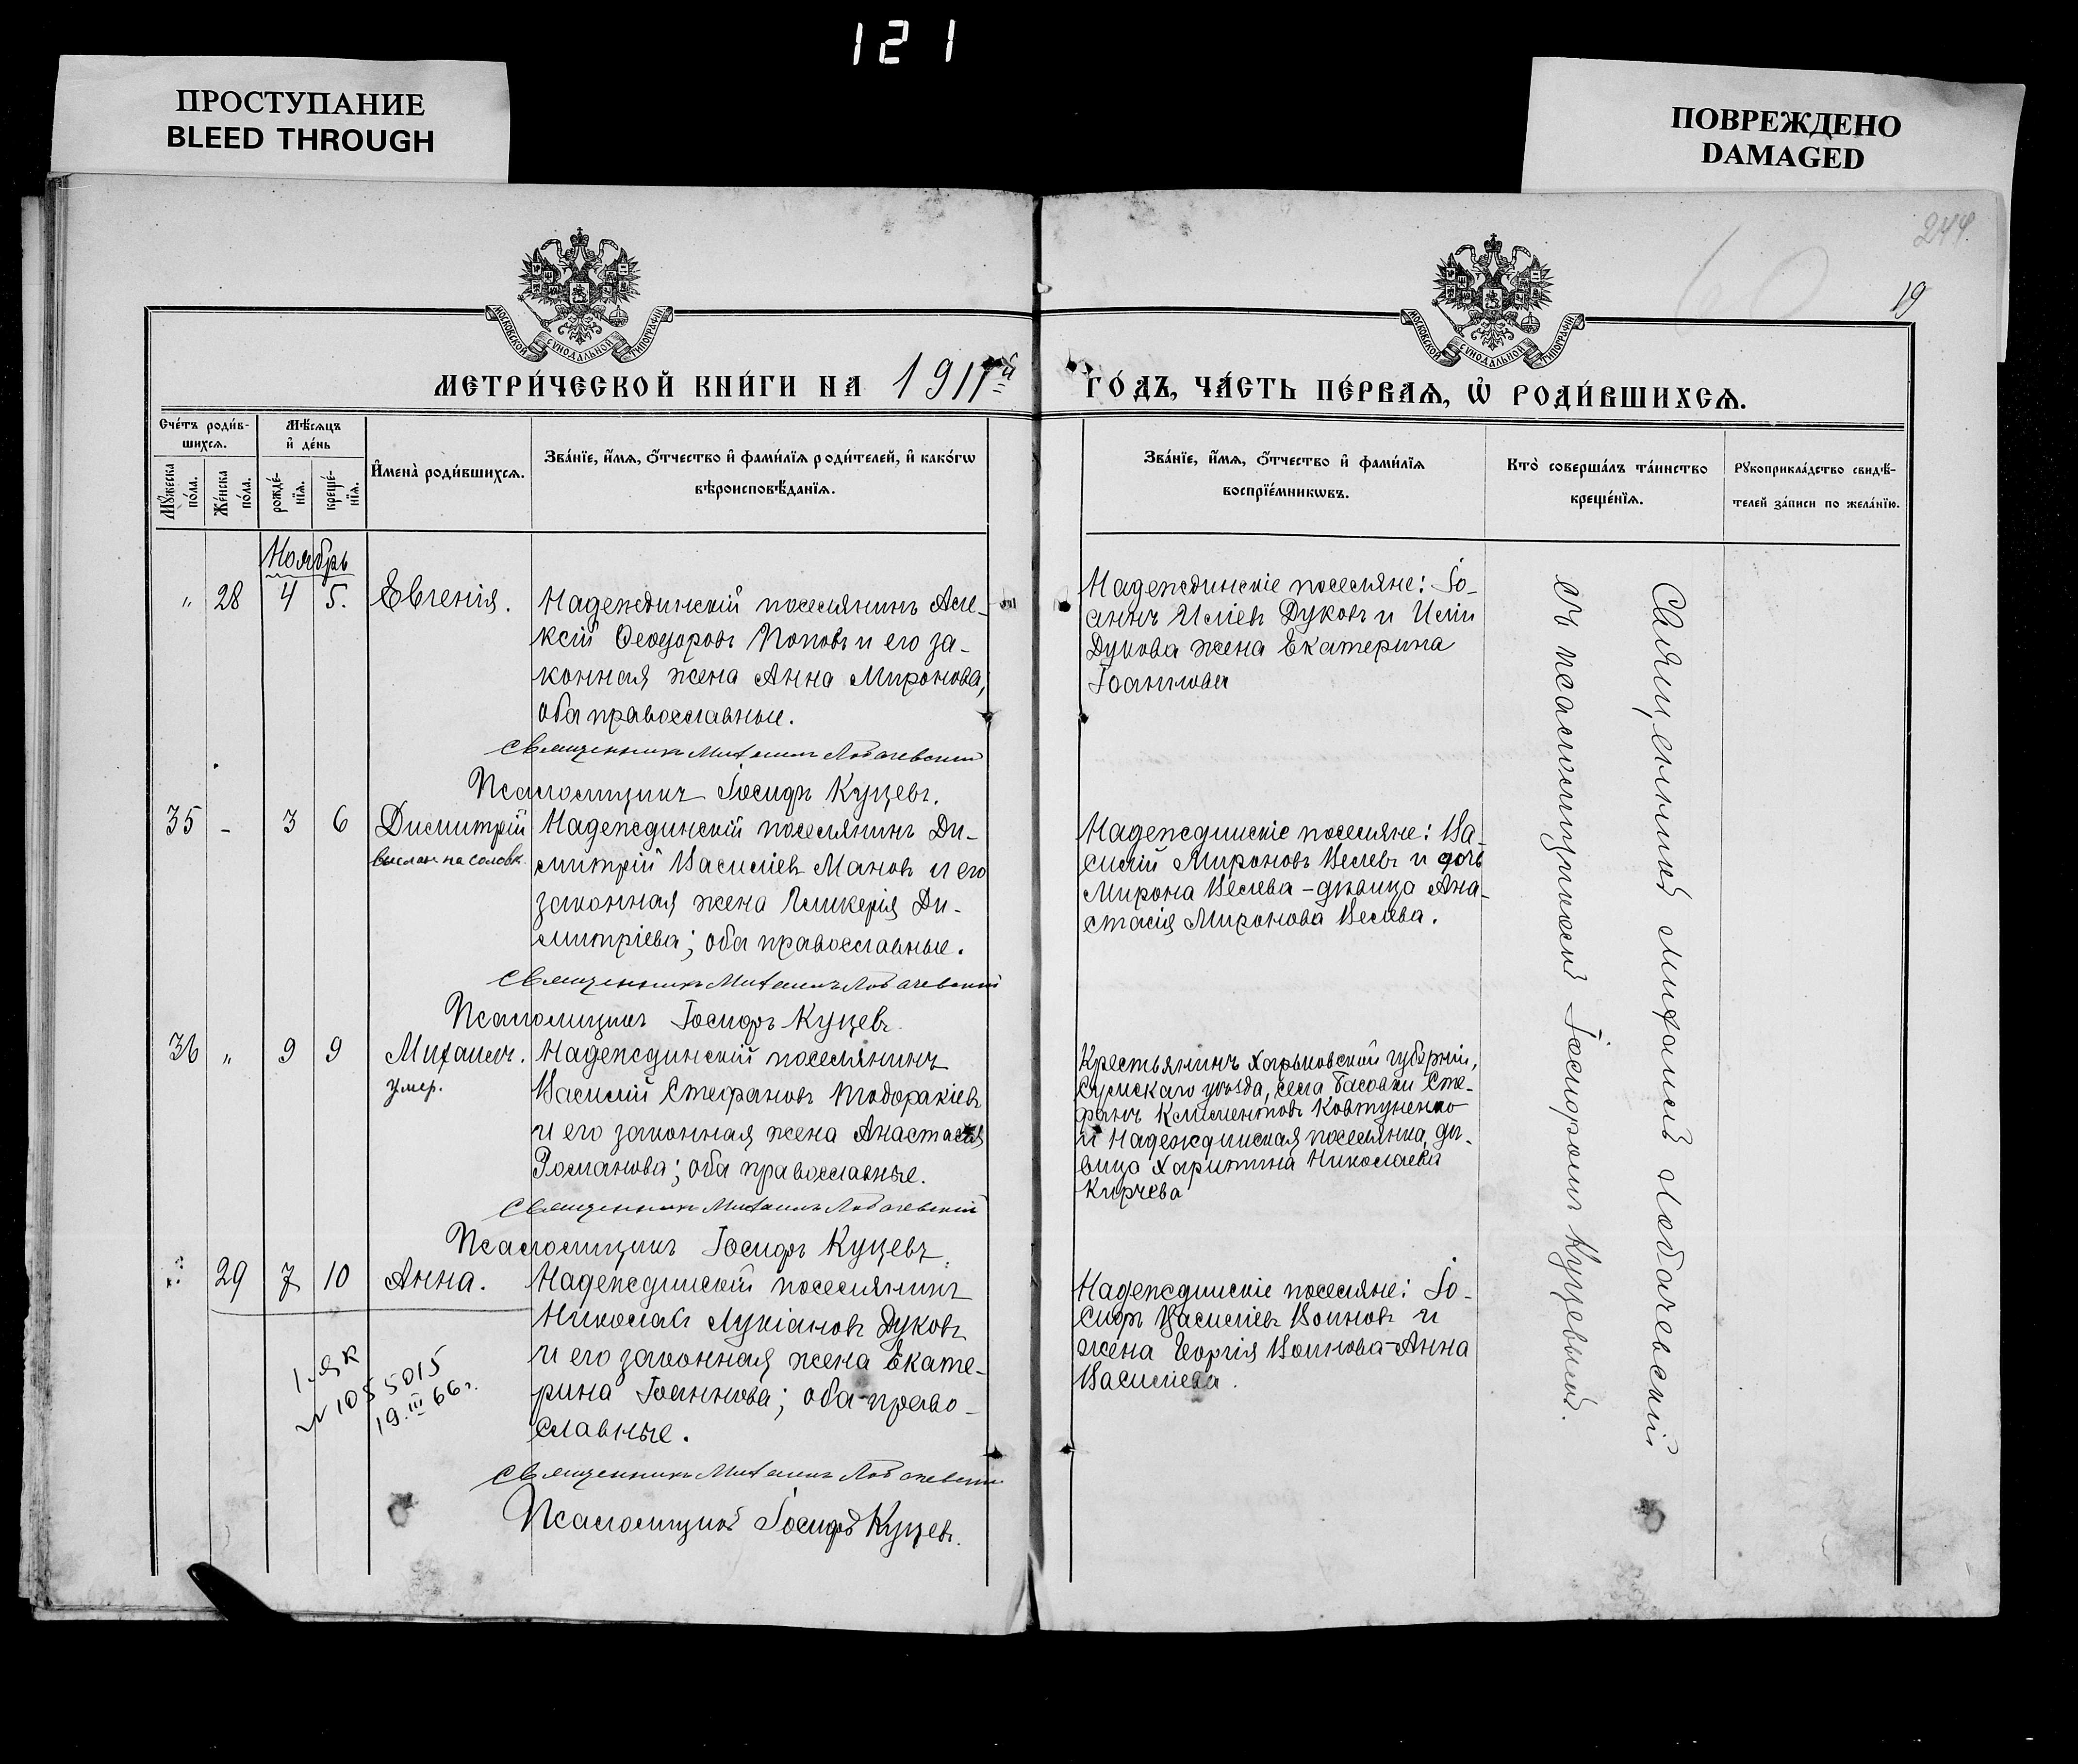 121
ПРОСТУПАНИЕ
BLEED THROUGH
ПОВРЕЖДЕНО
DAMAGED
244.
19
МОСКОВСКОЙ СѴНОДАЛЬНОЙ ТИПОГРАФІИ
МОСКОВСКОЙ СѴНОДАЛЬНОЙ ТИПОГРАФІИ
МЕТРИ́ЧЕСКОЙ КНИ́ГИ НА 1911й
ГО́ДЪ, ЧА́СТЬ ПЕ́РВАѦ, Ѡ҆ РОДИ́ВШИХСѦ.
Сче́тъ роди́в-
шихсѧ.
Мѣ́сѧцъ
и҆ де́нь
Мꙋ́жеска
по́ла.
Же́нска
по́ла.
рожде́-
нїѧ.
креще́-
нїѧ.
И҆мена̀ роди́вшихсѧ.
Зва́нїе, и҆́мѧ, ѻ҆́тчество и҆ фами́лїѧ роди́телей, и҆ како́гѡ
вѣроисповѣ́данїѧ.
Зва́нїе, и҆́мѧ, ѻ҆́тчество и҆ фами́лїѧ
воспрїе́мникѡвъ.
Кто̀ соверша́лъ та́инство
креще́нїѧ.
Рꙋкоприкла́дство свидѣ́-
телей за́писи по жела́нїю.
Ноябрь
" 28 4 5. Евгенія.
Надеждинскій поселянинъ Але-
ксій Ѳеодоровъ Поповъ и его за-
конная жена Анна Миронова,
оба православные.
Священникъ Михаилъ Лобачевскій
Псаломщикъ Іосифъ Куцевъ.
Надеждинскіе поселяне: Іо-
аннъ Иліевъ Дуковъ и Иліи
Дукова жена Екатерина
Іоаннова
35 - 3 6 Димитрій
Надеждинскій поселянинъ Ди-
митрій Василіевъ Мановъ и его
законная жена Гликерія Ди-
митріева; оба православные.
Священникъ Михаилъ Лобачевскій
Псаломщикъ Іосифъ Куцевъ.
Надеждинскіе поселяне: Ва-
силій Мироновъ Велевъ и дочь
Мирона Велева - дѣвица Ана-
стасія Миронова Велева.
36 " 9 9 Михаилъ.
умер.
Надеждинскій поселянинъ
Василій Стефановъ Тодоракіевъ
и его законная жена Анастасія
Романова; оба православные.
Священникъ Михаилъ Лобачевскій
Псаломщикъ Іосифъ Куцевъ.
Крестьянинъ Харьковской губерніи,
Сумскаго уѣзда, села Басовки Сте-
фанъ Климентовъ Ковтуненко
и Надеждинская поселянка, дѣ-
вица Харитина Николаева
Кирчева
29 7 10 Анна.
Надеждинскій поселянинъ
Николай Лукіановъ Дуковъ
и его законная жена Екате-
рина Іоаннова; оба право-
славные.
Священникъ Михаилъ Лобачевскій
Псаломщикъ Іосифъ Куцевъ.
1055015
19.III 66г.
Надеждинскіе поселяне: Іо-
сифъ Василіевъ Воиновъ и
жена Георгія Воинова-Анна
Василіева.
Священникъ Михаилъ Лобачевскій
съ псаломщикомъ Іосифомъ Куцевымъ.